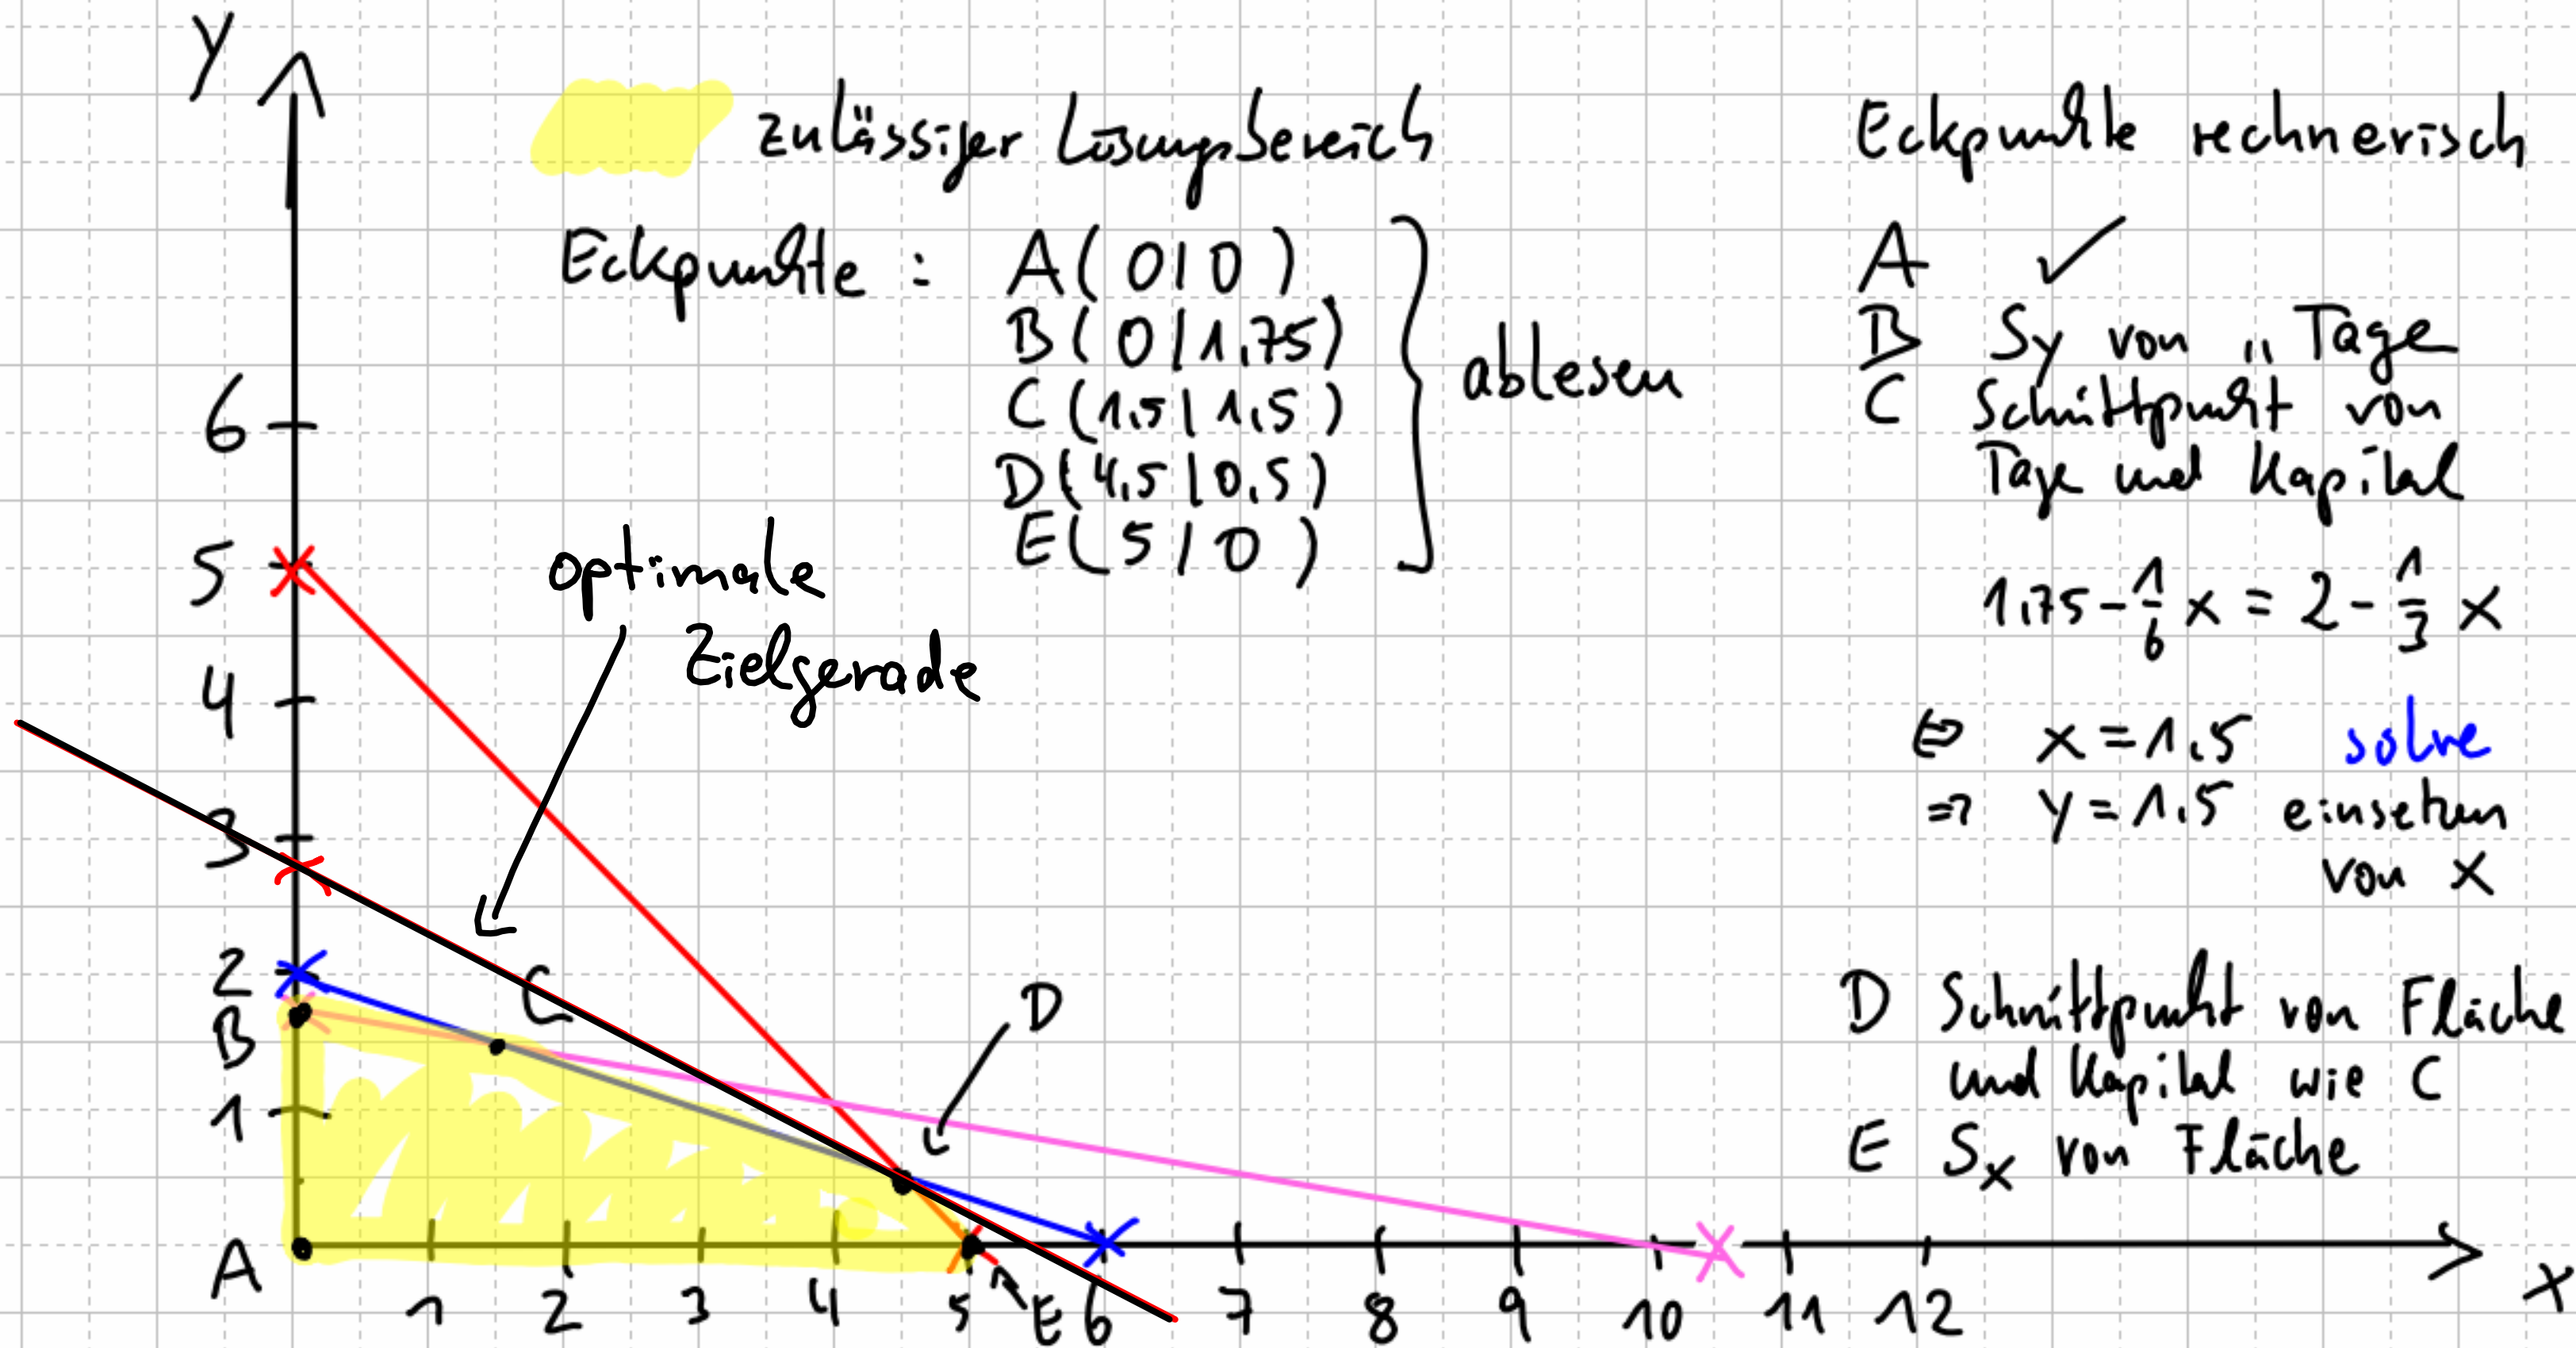 y
zulässiger Lösungsbereich
Eckpunkte : A( 0 | 0 )
B( 0 | 1,75)
C (1,5 | 1,5 )
D( 4,5 | 0,5 )
E( 5 | 0 )
ablesen
Eckpunkte rechnerisch
A ✓
B Sy von " Tage
C Schnittpunkt von
Tage und Kapital
1,75 - 1/6 x = 2 - 1/3 x
⇔ x = 1,5 solve
⇒ y = 1,5 einsetzen
von x
D Schnittpunkt von Fläche
und Kapital wie C
E Sx von Fläche
optimale
Zielgerade
6
5
4
3
2
B
1
A
C
D
1 2 3 4 5 E 6 7 8 9 10 11 12 x